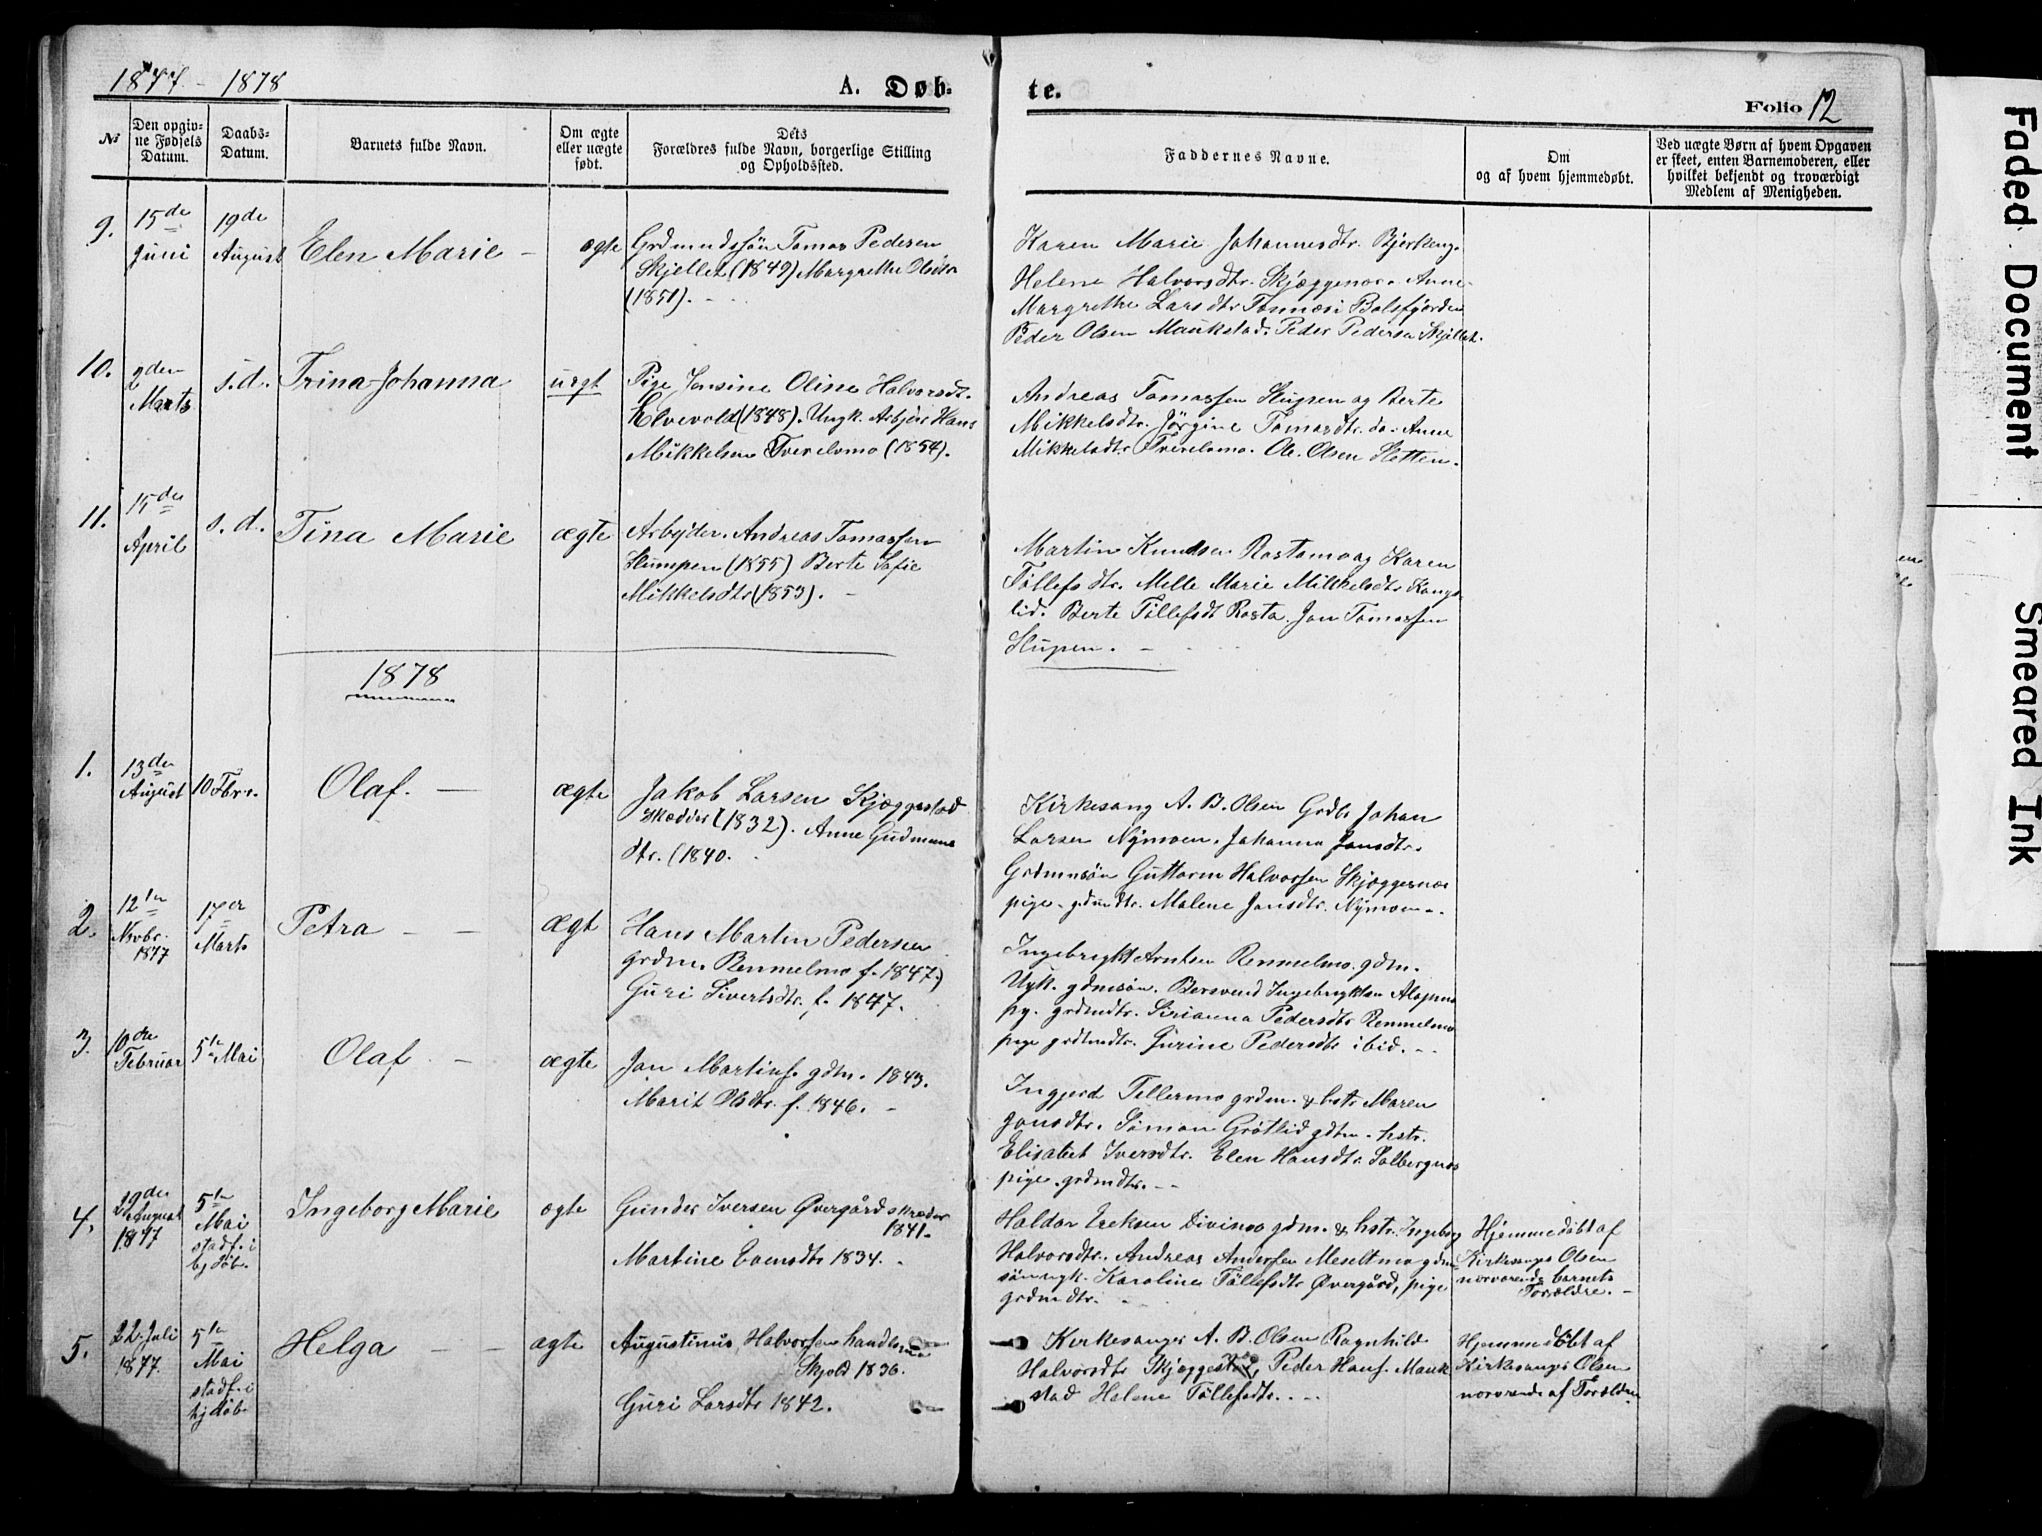 1877 - 1878
A. Døb-
te.
Folio 12
№
Den opgiv-
ne Fødsels
Datum.
Daabs-
Datum.
Barnets fulde Navn.
Om ægte
eller uægte
født.
Dets
Forældres fulde Navn, borgerlige Stilling
og Opholdssted.
Faddernes Navne.
Om
og af hvem hjemmedøbt.
Ved uægte Børn af hvem Opgaven
er skeet, enten Barnemoderen, eller
hvilket bekjendt og troværdigt
Medlem af Menigheden.
9.
15de
Juni
19de
August
Elen Marie -
ægte
Grdmandssøn Tomas Pedersen
Skjellet (1849) Margrethe Olsdtr
(1851). -
Karen Marie Johannesdtr. Bjerkeng.
Helene Halvorsdtr. Skjæggenæs. Anne
Margrethe Larsdtr Tomnæs i Balsfjorden
Peder Olsen Maukstad. Peder Pedersen Skjellet.
10.
9den
Marts
s.d.
Trina Johanna
uægt
Pige Jensine Oline Halvorsdt.
Elvevold (1848). Ungk. Arbjder Hans
Mikkelsen Tverelvmo (1854).
Andreas Tomassen Slupen og Berte
Mikkelsdtr. Jørgine Tomasdtr. do. Anne
Mikkelsdtr Tverelvmo. Ole Olsen Sletten.
11.
15de
April
s.d.
Tina Marie
ægte
Arbejder. Andreas Tomassen
Slumpen (1855) Berte Sofie
Mikkelsdtr (1853). -
Martin Knudsen Rostamo og Karen
Tøllefsdtr. Mille Marie Mikkelsdtr Kongs
lid. Berte Tøllefsdt Rosta. Jon Tomassen
Slupen. -
1878
1.
13de
August
10 Fbr.
Olaf. -
ægte
Jakob Larsen Skjæggestad
Skædder (1832). Anne Gudmuns
dtr. (1840.
Kirkesang A. B. Olsen Grdbr Johan
Larsen Nymoen. Johanna Jonsdtr.
Grdmnsøn Guttorm Halvorsen Skjæggesnæs
pige. gdmdtr. Malene Jonsdtr. Nymoen -.
2.
12te
Novbr.
1877
17er
Marts
Petra - -
ægt
Hans Martin Pedersen
grdm. Remmelmo f. 1847.)
Guri Sivertsdtr. f. 1847.
Ingebrigt Arntsen Remmelmo. gdm.
Ugk. gdmsøn. Bersvend Ingebrigtsen Alapmo
pg. grdmdtr. Sirianna Pedersdtr Remmelmo
pige grdmdtr. Gurine Pedersdtr ibid. - -
3.
10de
Februar
5te Mai
Olaf -
ægte
Jon Martins. gdm. 1843.
Marit Olsdtr. f. 1846. -
Ingjerd Tellermo grdm. & hstr Maren
Jonsdtr. Simon Grøtlid gdm. hstr.
Elisabet Iversdtr. Elen Hansdtr Solbergnæs
pige. grdmdtr. - -
4.
29de
August
1877
5te
Mai
stadf. i
hj døb.
Ingeborg Marie
ægte
Gunder Iversen Øvergård skræder
1841.
Martine Evensdtr 1834. -
Haldor Ereksen Divimo gdm. & hstr. Ingeborg
Halvorsdtr. Andreas Andersen Meseltmo gdm
søn ugk. Karoline Tøllefsdtr Øvergård, pige
grdmdtr. -
Hjemmedøbt af
Kirkesangr Olsen
nærværende barnets
Forældre. -
5.
22. Juli
1877.
5te
Mai
stadf. i
hj døb
Helga - -
ægte
Augustinus Halvorsen handlsma
Skjold 1836.
Guri Larsdtr 1842.
Kirkesanger A. B. Olsen Ragnhild
Halvorsdtr Skjæggestad, Peder Hans. Mauk
stad Helene Tøllefsdtr. - -
Hjemmedøbt af
Kirkesangr Olsen
nærværende af Foræld
Faded Document
Smeared Ink